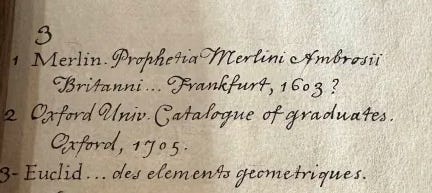 3
1 Merlin. Prophetia Merlini Ambrosii
Britanni... Frankfurt, 1603?
2 Oxford Univ. Catalogue of graduates.
Oxford, 1705.
3- Euclid... des elements geometriques.